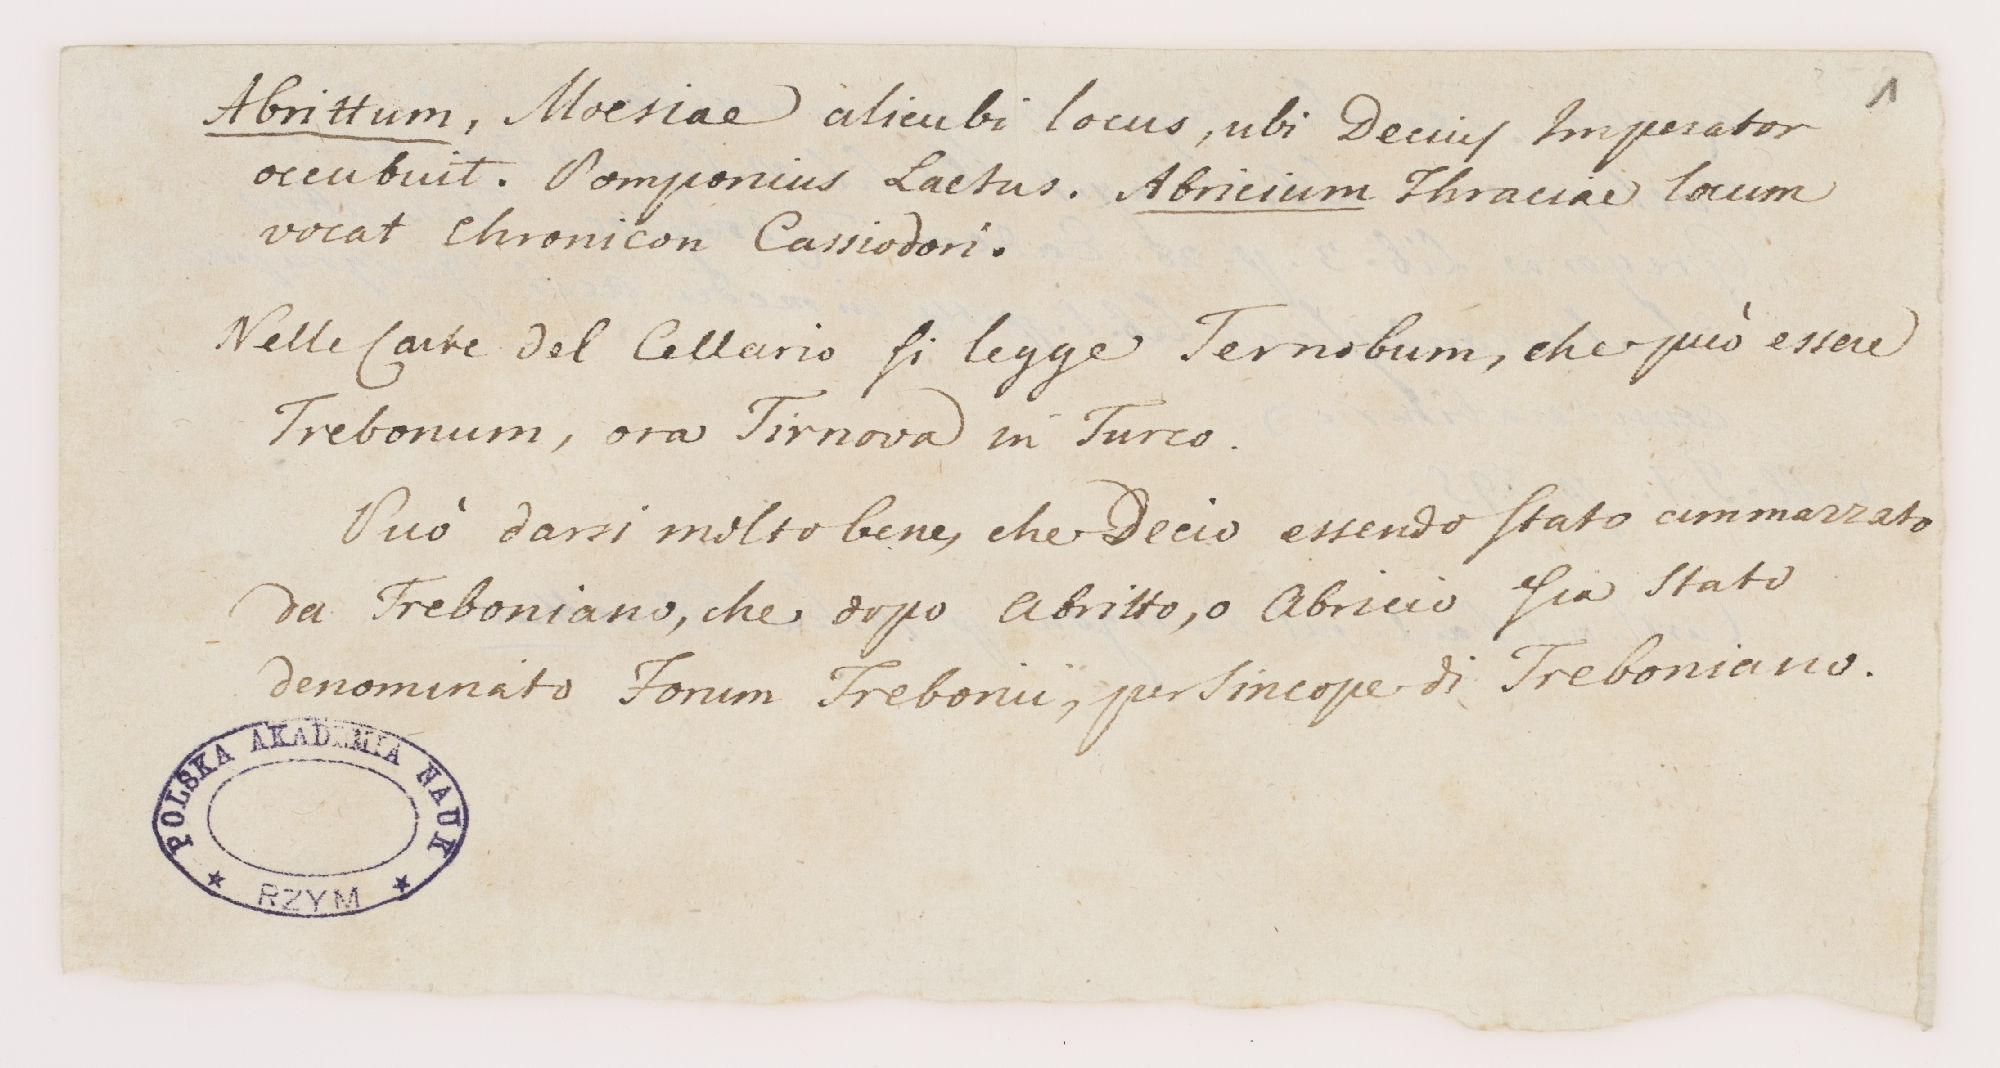 1
Abrittum, Moesiae alicubi locus, ubi Decius Imperator
occubuit. Pomponius Laetus. Abricium Thraciae locum
vocat Chronicon Cassiodori.
Nelle Carte del Cellario si legge Ternobum, che può essere
Trebonum, ora Tirnova in Turco.
Può darsi molto bene, che Decio essendo stato ammazzato
da Treboniano, che dopo Abritto, o Abricio sia stato
denominato Forum Trebonii, per sincope di Treboniano.
POLSKA AKADEMIA NAUK
RZYM